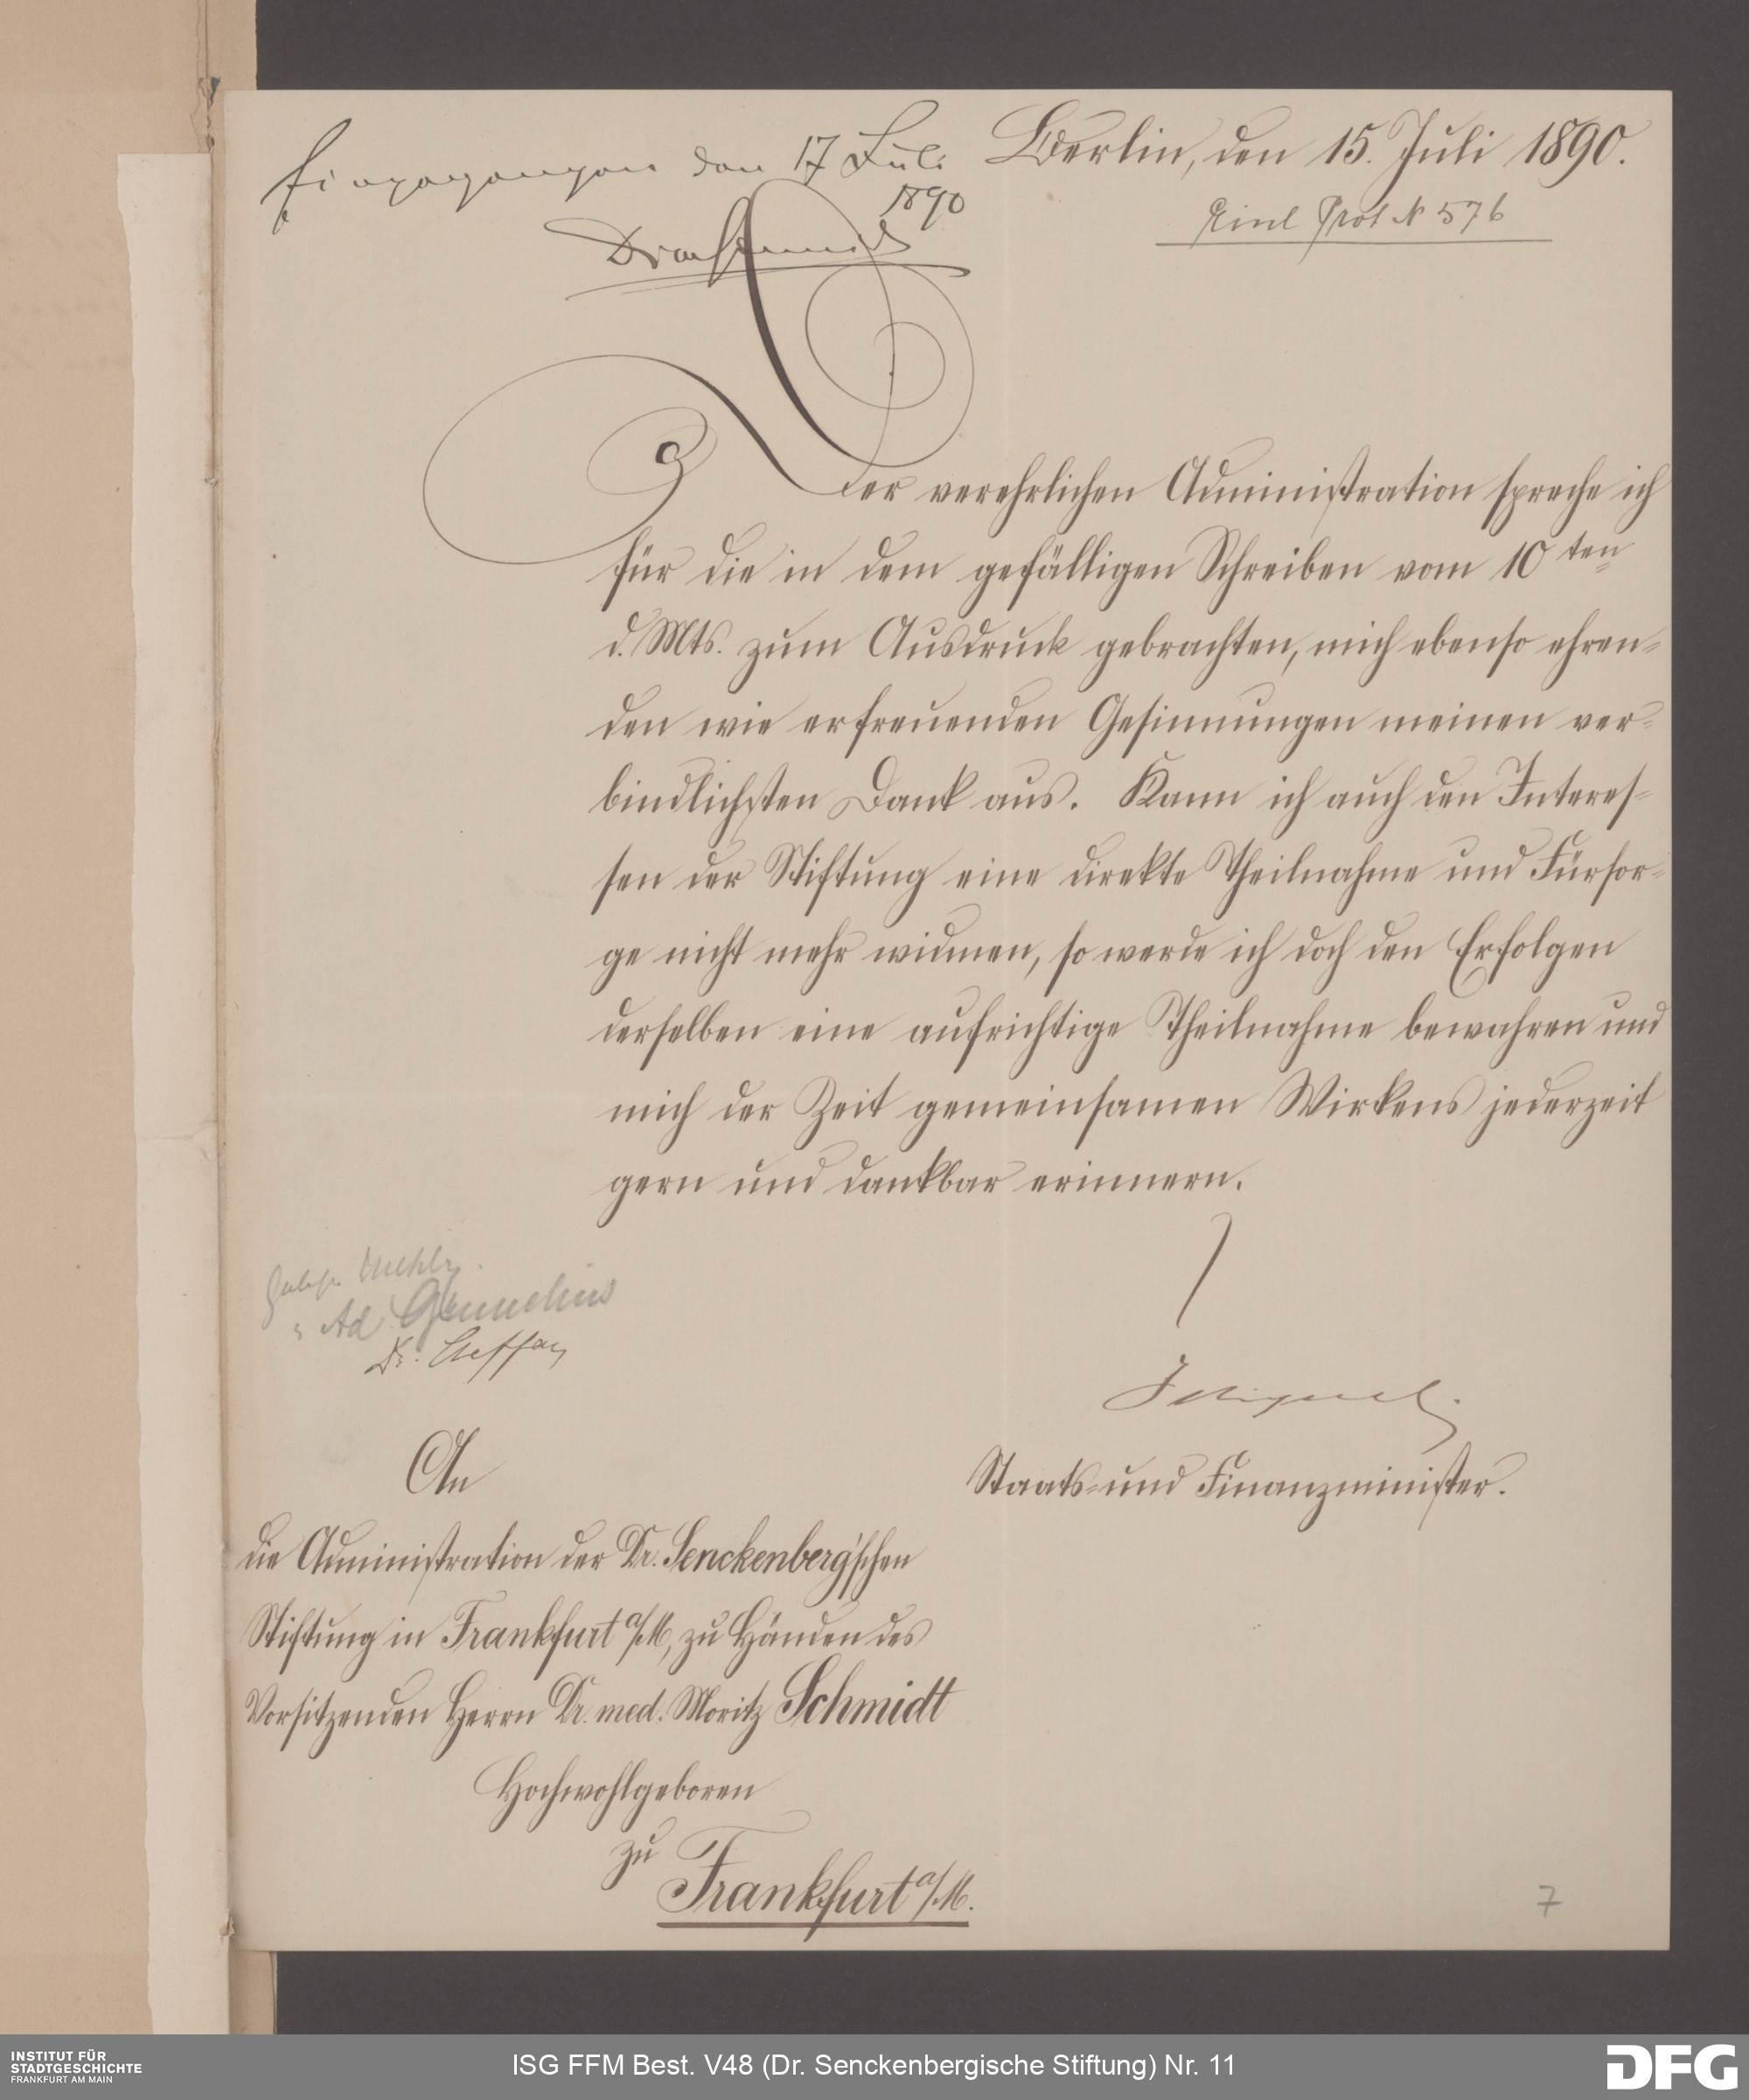 Eingegangen den 17 Juli
1890
Dr M Schmidt
Berlin, den 15. Juli 1890.
Einl Prot N 576
Der verehrlichen Administration spreche ich
für die in dem gefälligen Schreiben vom 10ten
d. Mts. zum Ausdruck gebrachten, mich ebenso ehren-
den wie erfreuenden Gesinnungen meinen ver-
bindlichsten Dank aus. Kann ich auch den Interes-
sen der Stiftung eine direkte Theilnahme und Fürsor-
ge nicht mehr widmen, so werde ich doch den Erfolgen
derselben eine aufrichtige Theilnahme bewahren und
mich der Zeit gemeinsamen Wirkens jederzeit
gern und dankbar erinnern.
" Ad Gmelin
Dr. Steffan
Miquel.
Staats- und Finanzminister.
An
die Administration der Dr. Senckenberg'schen
Stiftung in Frankfurt a/M, zu Händen des
Vorsitzenden Herrn Dr. med. Moritz Schmidt
Hochwohlgeboren
zu
Frankfurt a/M.
7
INSTITUT FÜR
STADTGESCHICHTE
FRANKFURT AM MAIN
ISG FFM Best. V48 (Dr. Senckenbergische Stiftung) Nr. 11
DFG